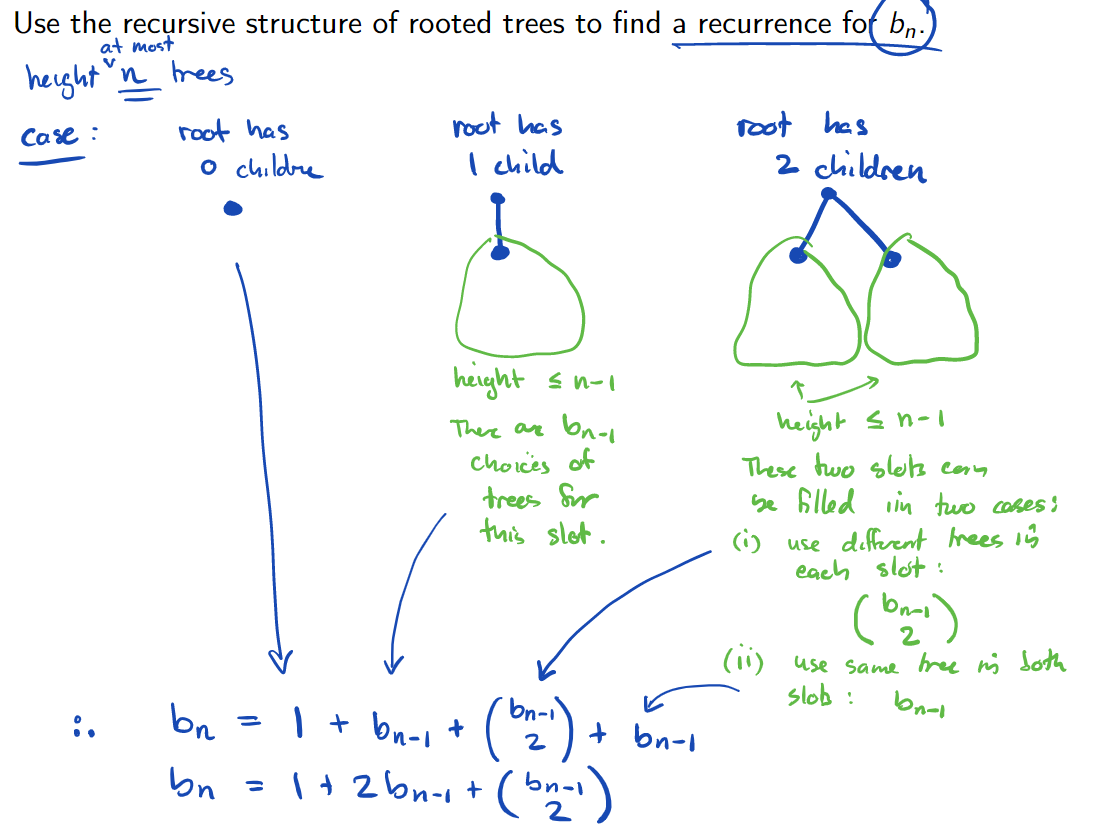 Use the recursive structure of rooted trees to find a recurrence for bₙ.
at most
height n trees
case :
root has
0 childre
root has
1 child
height ≤ n-1
There are bₙ₋₁
choices of
trees for
this slot.
root has
2 children
height ≤ n-1
These two slots can
be filled iin two cases:
(i) use different trees in
each slot :
(bₙ₋₁
2)
(ii) use same tree in both
slots : bₙ₋₁
∴ bₙ = 1 + bₙ₋₁ + (bₙ₋₁ 2) + bₙ₋₁
bₙ = 1 + 2bₙ₋₁ + (bₙ₋₁ 2)